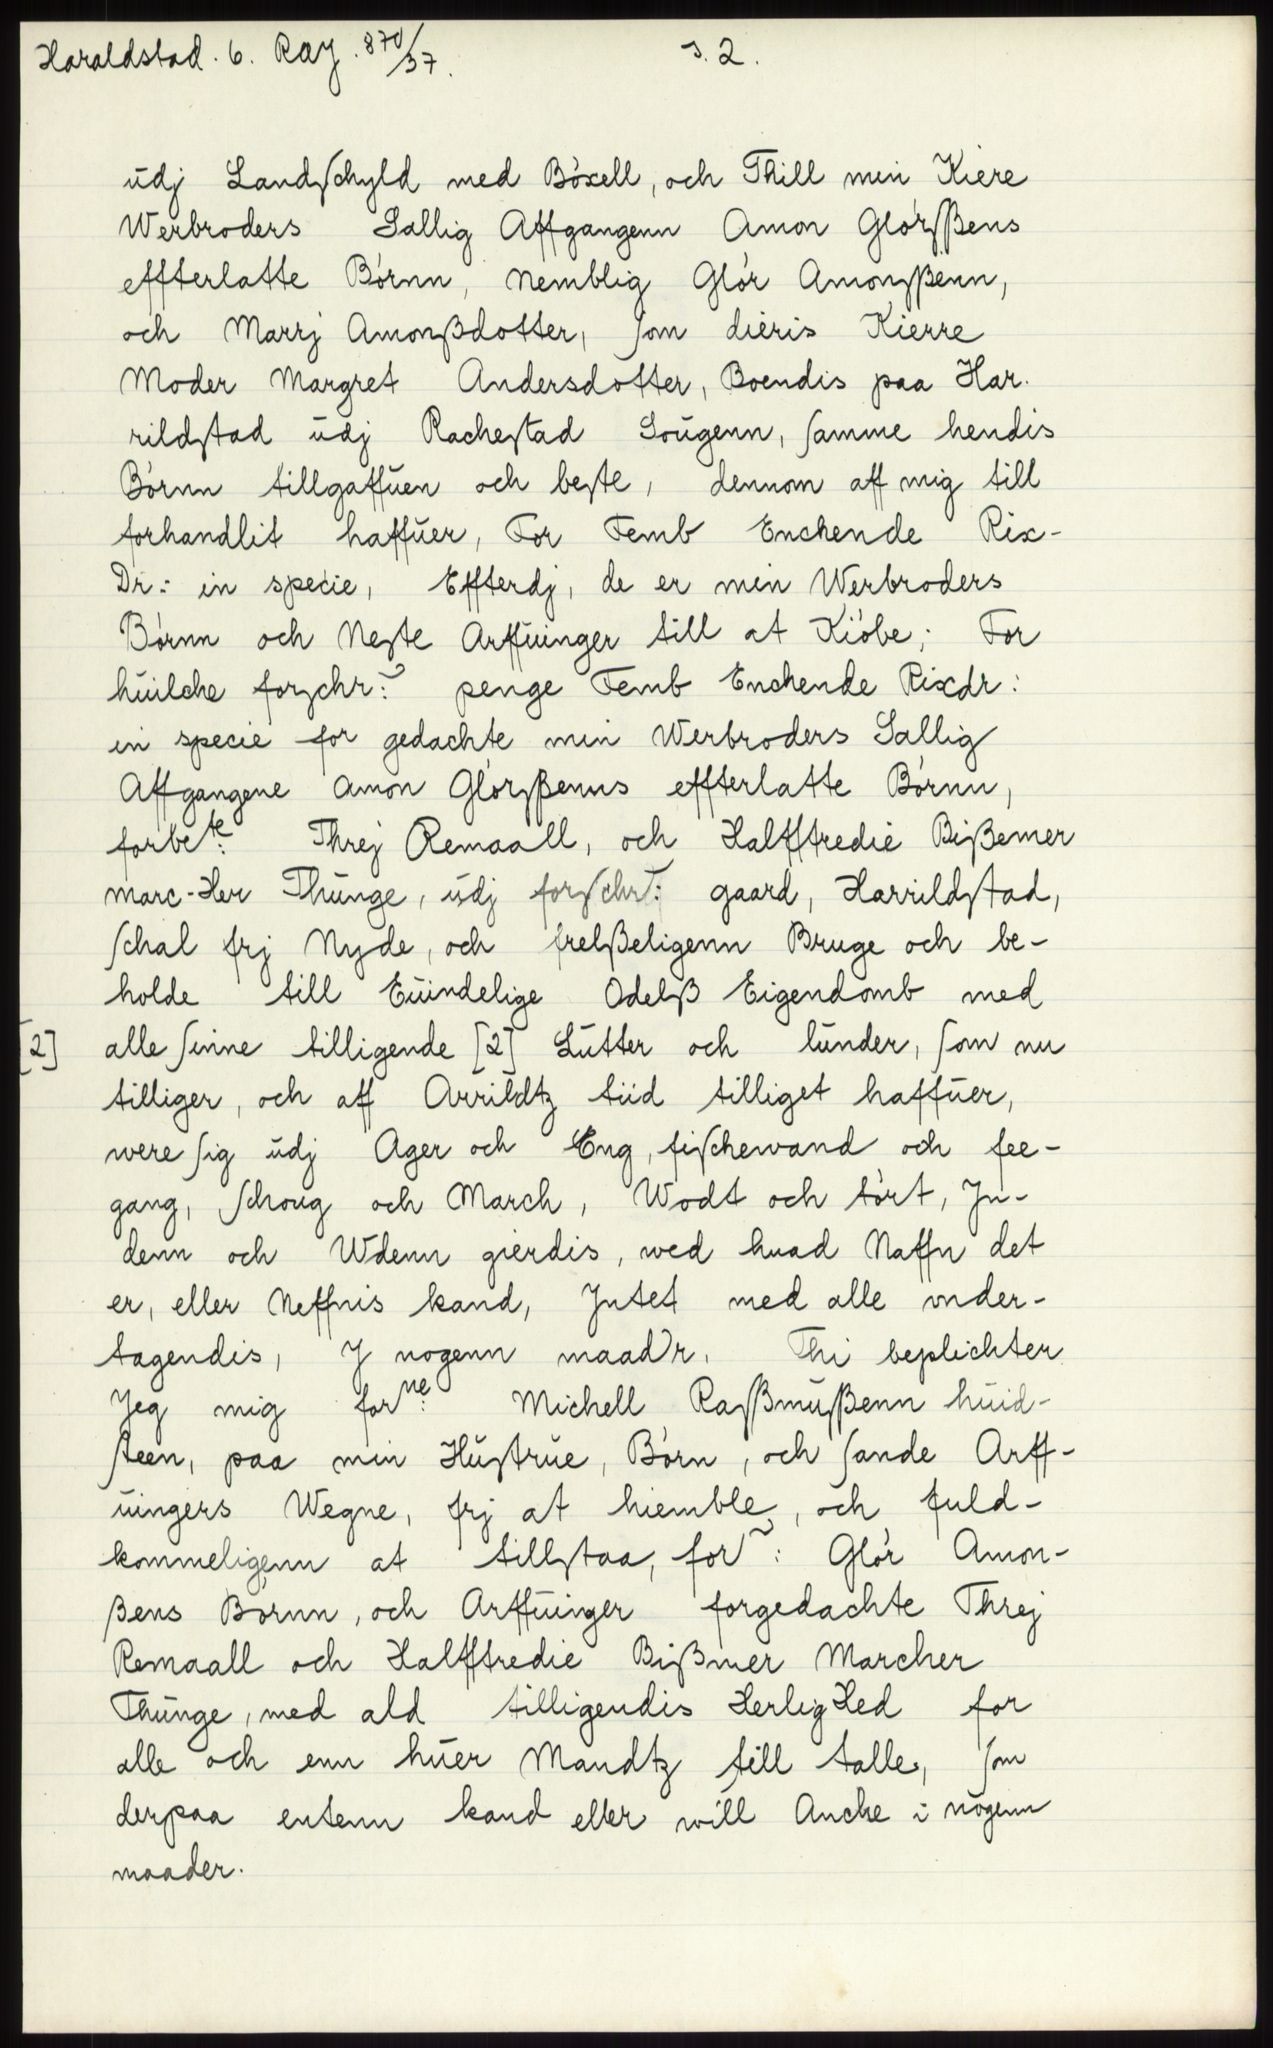 Haraldstad. 6. Ray. 870/37. s. 2.
udj Landschyld med Bóxell, och Thill min Kiere
Werbroders Sallig Affgangenn Amon Glórssens
effterlatte Bórnn, Nemblig Glór Amonssenn,
och Marrj Amonßdotter, som dieris Kierre
Moder Margret Andersdotter, Boendis paa Har-
rildstad udj Rachestad Sougenn, samme hendis
Bórnn tillgaffuen och beste, dennom aff mig till
forhandlit haffuer, For Femb Enchende Rix-
Dr: in specie, Effterdj, de er min Werbroders
Bórnn och Neste Arffuinger till at Kióbe; For
huilche forschr: penge Femb Enchende Rixdr:
in specie for gedachte min Werbroders Sallig
Affgangene Amon Glórssenns effterlatte Bórnn,
forbete: Threj Remaall, och Halfftredie Bißemer
marc-Her Thunge, udj forschr: gaard, Harrildstad,
schal frj Nyde, och frelßeligenn Bruge och be-
holde till Euindelige Odelß Eigendomb med
[2] alle sinne tilligende [2] Lutter och lunder, som nu
tilliger, och aff Arrildtz tiid tilliget haffuer,
were sig udj Ager och Eng, fischewand och fee-
gang, schoug och March, Wodt och tórt, Jn-
denn och Wdenn gierdis, wed huad Naffn det
er, eller Neffnis kand, Jntet med alle vnder-
tagendis, J nogenn maader. Thi beplichter
Jeg mig forne: Michell Rassmussenn huid-
steen, paa min Hustrue, Bórn, och sande Arff-
uingers Wegne, frj at hiemble, och fuld-
kommeligenn at tillstaa, for: Glór Amon-
ßens Bórnn, och Arffuinger forgedachte Threj
Remaall och Halfftredie Bißmer Marcher
Thunge, med ald tilligendis HerligHed for
alle och enn huer Mandtz till talle, som
derpaa entenn kand eller will Ancke i nogenn
maader.